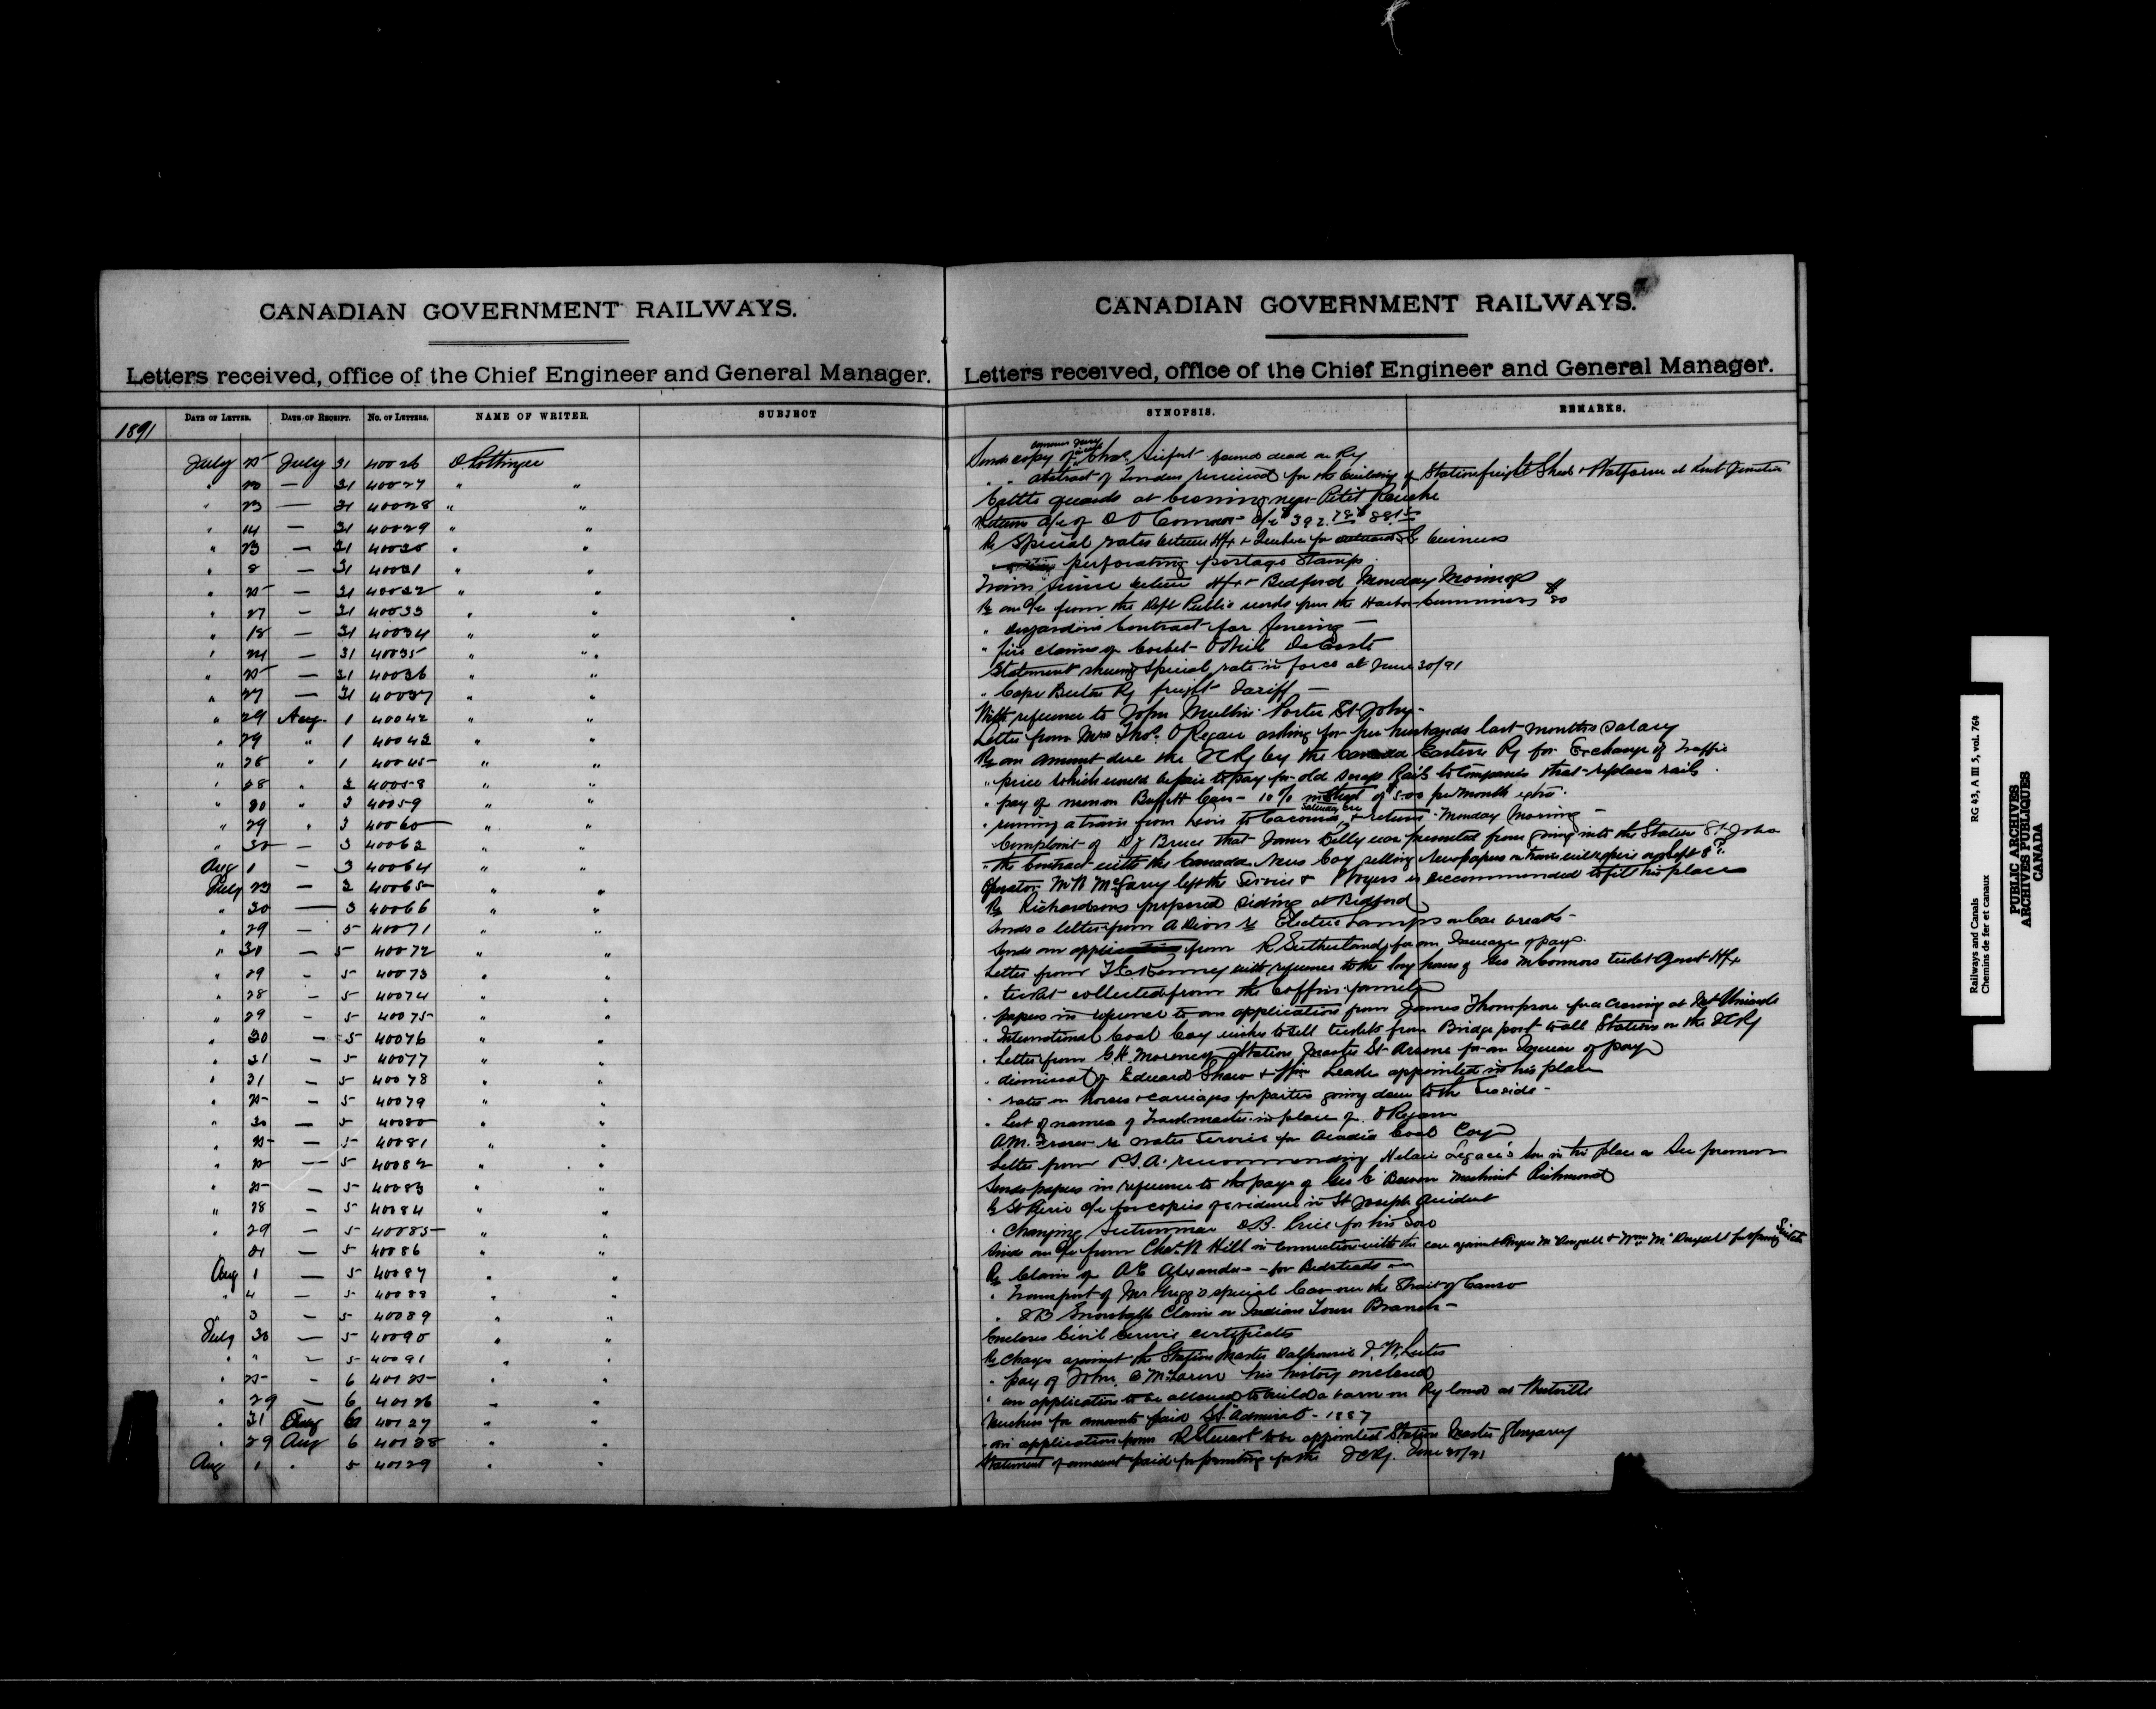 CANADIAN GOVERNMENT RAILWAYS.
Letters received, office of the Chief Engineer and General Manager.
1891
DATE OF LETTER. DATE OF RECEIPT. No. OF LETTERS. NAME OF WRITER. SUBJECT
July 25 July 31 40026 D. Pottinger
" 20 — 31 40027 " "
" 23 — 31 40028 " "
" 14 — 31 40029 " "
" 23 — 31 40030 " "
" 8 — 31 40031 " "
" 25 — 31 40032 " "
" 27 — 31 40033 " "
" 18 — 31 40034 " "
" 24 — 31 40035 " "
" 25 — 31 40036 " "
" 27 — 31 40037 " "
" 29 Aug 1 40042 " "
" 29 " 1 40043 " "
" 28 " 1 40045 " "
" 28 " 3 40058 " "
" 30 " 3 40059 " "
" 29 " 3 40060 " "
" 30 — 3 40063 " "
Aug 1 — 3 40064 " "
July 23 — 3 40065 " "
" 30 — 3 40066 " "
" 29 — 5 40071 " "
" 30 — 5 40072 " "
" 29 — 5 40073 " "
" 28 — 5 40074 " "
" 29 — 5 40075 " "
" 30 — 5 40076 " "
" 31 — 5 40077 " "
" 31 — 5 40078 " "
" 25 — 5 40079 " "
" 30 — 5 40080 " "
" 25 — 5 40081 " "
" 25 — 5 40082 " "
" 25 — 5 40083 " "
" 28 — 5 40084 " "
" 29 — 5 40085 " "
" 31 — 5 40086 " "
Aug 1 — 5 40087 " "
" 4 — 5 40088 " "
" 3 — 5 40089 " "
July 30 — 5 40090 " "
" " — 5 40091 " "
" 25 — 6 40125 " "
" 29 — 6 40126 " "
" 31 Aug 6 40127 " "
" 29 Aug 6 40128 " "
Aug 1 " 5 40129 " "
CANADIAN GOVERNMENT RAILWAYS.
Letters received, office of the Chief Engineer and General Manager.
SYNOPSIS. REMARKS.
Sends copy of Chas. found dead on Ry
" " abstract of Tenders received for the building of Station freight Shed & Platform at Kent Junction
Cattle guards at crossing near Petit Roche
Returns a/c of D O'Connor
Re Special rates between Hfx & Quebec for business
perforating postage Stamps
Train service between Hfx & Bedford Monday Mornings
Re an a/c from the Dept Public works from the Harbor Commissioners $80
" regarding Contract for fencing —
" fire claims of Corbet O'Neil DeCoste
Statement shewing Special rate in force at June 30/91
" Cape Breton Ry freight Tariff —
With reference to John Mullin Porter St John
Letter from Mrs Thos. O'Regan asking for her husbands last months salary
Re an amount due the ICRy by the Canada Eastern Ry for Exchange of Traffic
" price which would be fair to pay for old scrap Rails to Companies that replace rails
" pay of men on Buffett Cars — 10% instead of $5.00 per month extra
" running a train from Levis to Cacouna Saturday & return Monday Morning —
Complaint of D J Bruce that James Kelly was prevented from going into the Station St John
the Contract with the Canada News Coy selling newspapers on trains will expire
Operator McGarry left the Service & is recommended to fill his place
Re Richardsons proposed siding at Bedford
Sends a letter from A Dion re Electric Lamps on Car
Sends an application from R Sutherland for an Increase of pay
Letter from with reference to the long hours of Geo McConnors ticket Agent Hfx
" ticket collected from the Coffin family
" papers in reference to an application from James Thompson for a crossing at
" International Coal Coy wishes to sell tickets from Bridgeport to all Stations on the ICRy
" Letter from G.H. Morency Station Master St Arsene for an Increase of pay
" dismissal of Edward Shaw & Leade appointed in his place
" rates on horses & carriages for parties going down to the Seaside —
" List of names of Trackmaster in place of O'Regan
A M. Fraser re water Service for Acadia Coal Coy
Letter from P.S.A. recommending Hilaire Legace's son in his place as Sec foreman
Sends papers in reference to the pay of Geo C Machinist Richmond
a/c for copies of evidence in St Joseph Accident
" Changing Sectionman D.B. Price for his Son
Sends an a/c from Chas. N Hill in Connection with the case against Angus McDougall & Wm McDougall
Re Claim of A E Alexander for Bedsteads
" Transport of Mr Grigg's special Car over the Strait of Canso
" J B Snowballs Claim on Indian Town Branch —
Encloses Civil Service certificates
Re charges against the Station Master Dalhousie
" pay of John McLaren his history enclosed
" an application to be allowed to build a barn on Ry land at Westville
Vouchers for amounts paid Str Admiral — 1887
" an application from R Stewart to be appointed Station Master Glengarry
Statement of amount paid for printing for the ICRy. June 30/91
Railways and Canals RG 43, A III 5, vol. 764
Chemins de fer et canaux
PUBLIC ARCHIVES
ARCHIVES PUBLIQUES
CANADA